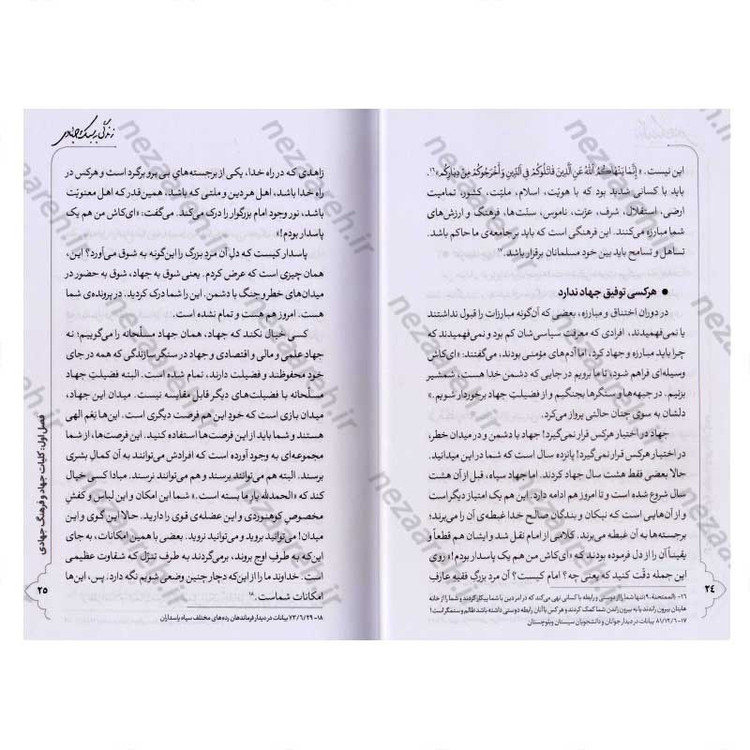 این نیست. «إِنَّمَا يَنْهَاكُمُ اللَّهُ عَنِ الَّذِينَ قَاتَلُوكُمْ فِي الدِّينِ وَأَخْرَجُوكُمْ مِنْ دِيَارِكُمْ»۱۶.
باید با کسانی شدید بود که با هویّت، اسلام، ملیّت، کشور، تمامیت
ارضی، استقلال، شرف، عزت، ناموس، سنّت‌ها، فرهنگ و ارزش‌های
شما مبارزه می‌کنند. این فرهنگی است که باید بر جامعه‌ی ما حاکم باشد.
تساهل و تسامح باید بین خود مسلمانان برقرار باشد. ۱۷
● هرکسی توفیق جهاد ندارد
در دوران اختناق و مبارزه، بعضی که آن‌گونه مبارزات را قبول نداشتند
یا نمی‌فهمیدند، افرادی که معرفت سیاسی‌شان کم بود و نمی‌فهمیدند که
چرا باید مبارزه و جهاد کرد، اما آدم‌های مؤمنی بودند، می‌گفتند: «ای‌کاش
وسیله‌ای فراهم شود، تا ما برویم در جایی که دشمن خدا هست، شمشیر
بزنیم. در جبهه‌ها و سنگرها بجنگیم و از فضیلت جهاد برخوردار شویم.»
دلشان به سوی چنان حالتی پرواز می‌کرد.
جهاد در اختیار هرکس قرار نمی‌گیرد! جهاد با دشمن و در میدان خطر،
در اختیار هرکس قرار نمی‌گیرد! پانزده سال است که شما در این میدانید.
حالا بعضی فقط هشت سال جهاد کردند. اما جهاد سپاه، قبل از آن هشت
سال شروع شده است و تا امروز هم ادامه دارد. این هم یک امتیاز دیگر است
و از آن‌هایی است که نیکان و بندگان صالح خدا غبطه‌ی آن را می‌برند؛
برجسته‌ها به آن غبطه می‌برند. کلامی از امام نقل شد و ایشان هم قطعاً و
یقیناً آن را از دل فرموده بودند که «ای‌کاش من هم یک پاسدار بودم!» روی
این جمله دقّت کنید که یعنی چه؟ امام کیست؟ آن مرد بزرگ فقیه عارف
۱۶- (الممتحنة، ۹)؛ تنها شما را از دوستی و رابطه با کسانی نهی می‌کند که در امر دین با شما پیکار کردند و شما را از خانه
هایتان بیرون راندند یا به بیرون راندن شما کمک کردند و هرکس با آنان رابطه دوستی داشته باشد ظالم و ستمگر است!
۱۷- ۸۱/۱۲/۶ بیانات در دیدار جوانان و دانشجویان سیستان وبلوچستان
۲۴
زاهدی که در راه خدا، یکی از برجسته‌های بی بروبرگرد است و هرکس در
راه خدا باشد، اهل هر دین و ملتی که باشد، همین‌قدر که اهل معنویّت
باشد، نور وجود امام بزرگوار را درک می‌کند. می‌گفت: «ای‌کاش من هم یک
پاسدار بودم!»
پاسدار کیست که دل آن مرد بزرگ را این‌گونه به شوق می‌آورد؟ این،
همان چیزی است که عرض کردم. یعنی شوق به جهاد، شوق به حضور در
میدان‌های خطر و جنگ با دشمن. این را شما درک کردید. در پرونده‌ی شما
هست. امروز هم هست و تمام نشده است.
کسی خیال نکند که جهاد، همان جهاد مسلّحانه را می‌گوییم؛ نه
جهاد علمی و مالی و اقتصادی و جهاد در سنگر سازندگی که همه در جای
خود محفوظند و فضیلت دارند، تمام شده است. البته فضیلت جهاد
مسلّحانه با فضیلت‌های دیگر قابل مقایسه نیست. میدان این جهاد،
میدان بازی است که خود این هم فرصت دیگری است. این‌ها نِعَم الهی
هستند و شما باید از این فرصت‌ها استفاده کنید. این فرصت‌ها، از شما
مجموعه‌ای به وجود آورده است که افرادش می‌توانند به آن کمال بشری
برسند. البته هم می‌توانند برسند و هم می‌توانند نرسند. مبادا کسی خیال
کند که «الحمدلله بار ما بسته است.» شما این امکان و این لباس و کفش
مخصوص کوهنوردی و این عضله‌ی قوی را دارید. حالا این گوی و این
میدان! می‌توانید بروید و می‌توانید نروید. بعضی با همین امکانات، به جای
این‌که به طرف اوج بروند، برمی‌گردند به طرف تنزّل که شقاوت عظیمی
است. خداوند ما را از این‌که دچار چنین وضعی شویم نگه دارد. پس، این‌ها
امکانات شماست. ۱۸
۱۸- ۷۳/۶/۲۹ بیانات در دیدار فرماندهان رده‌های مختلف سپاه پاسداران
فصل اول: کلیات جهاد و فرهنگ جهادی
۲۵
nezaareh.ir